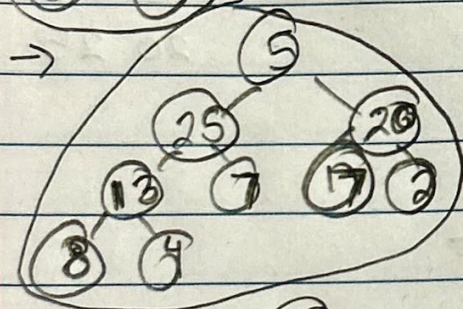 → 5
25 20
13 7 17 2
8 4